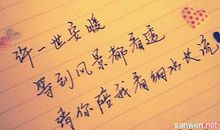 许一世安暖
等到风景都看透
请你陪我看细水长流
sanwen.net